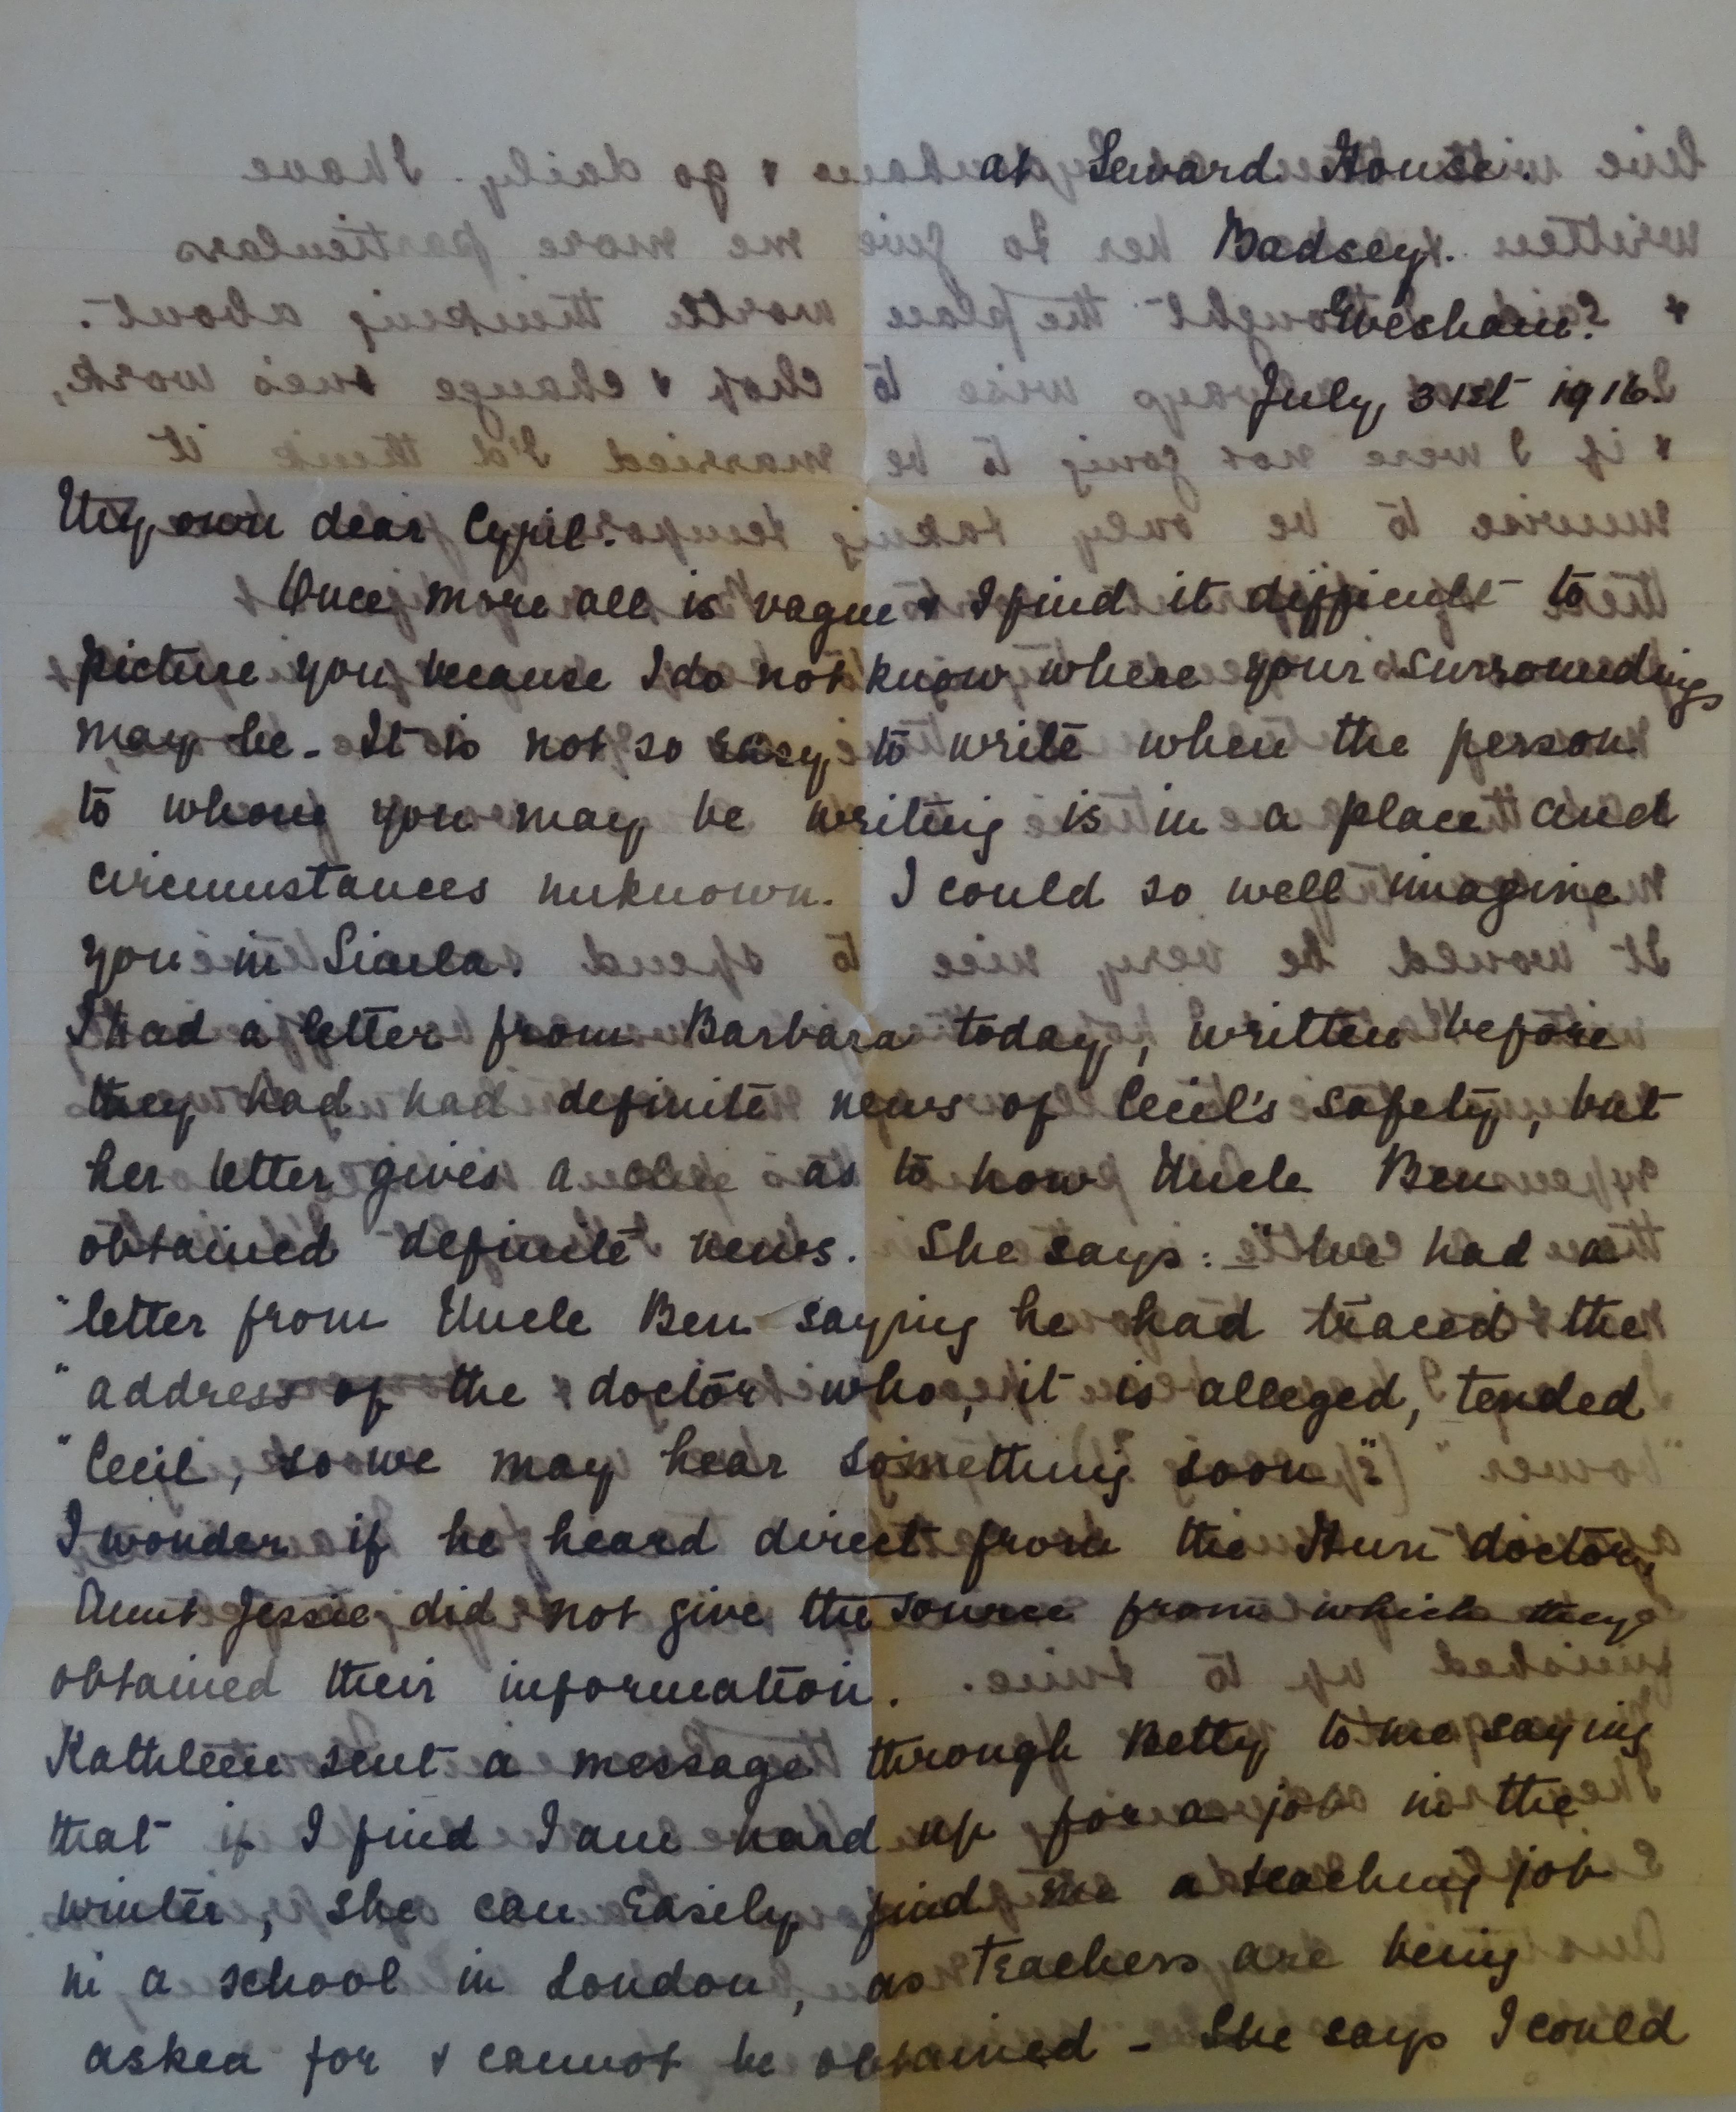 at Seward House.
Badsey.
Evesham.
July 31st 1916.
My own dear Cyril.
Once more all is vague & I find it difficult to
picture you because I do not know where your surroundings
may be. It is not so easy to write when the person
to whom you may be writing is in a place and
circumstances unknown. I could so well imagine
you in Simla.
I had a letter from Barbara today, written before
they had had definite news of Cecil's safety, but
her letter gives a clue as to how Uncle Ben
obtained definite news. She says: - "We had a
"letter from Uncle Ben saying he had traced the
"address of the doctor who, it is alleged, tended
"Cecil, so we may hear something soon".
I wonder if he heard direct from the Hun doctor,
Aunt Jessie did not give the source from which they
obtained their information.
Kathleen sent a message through Betty to me saying
that if I find I am hard up for a job in the
winter, she can easily find me a teaching job
in a school in London, as teachers are being
asked for & cannot be obtained - She says I could